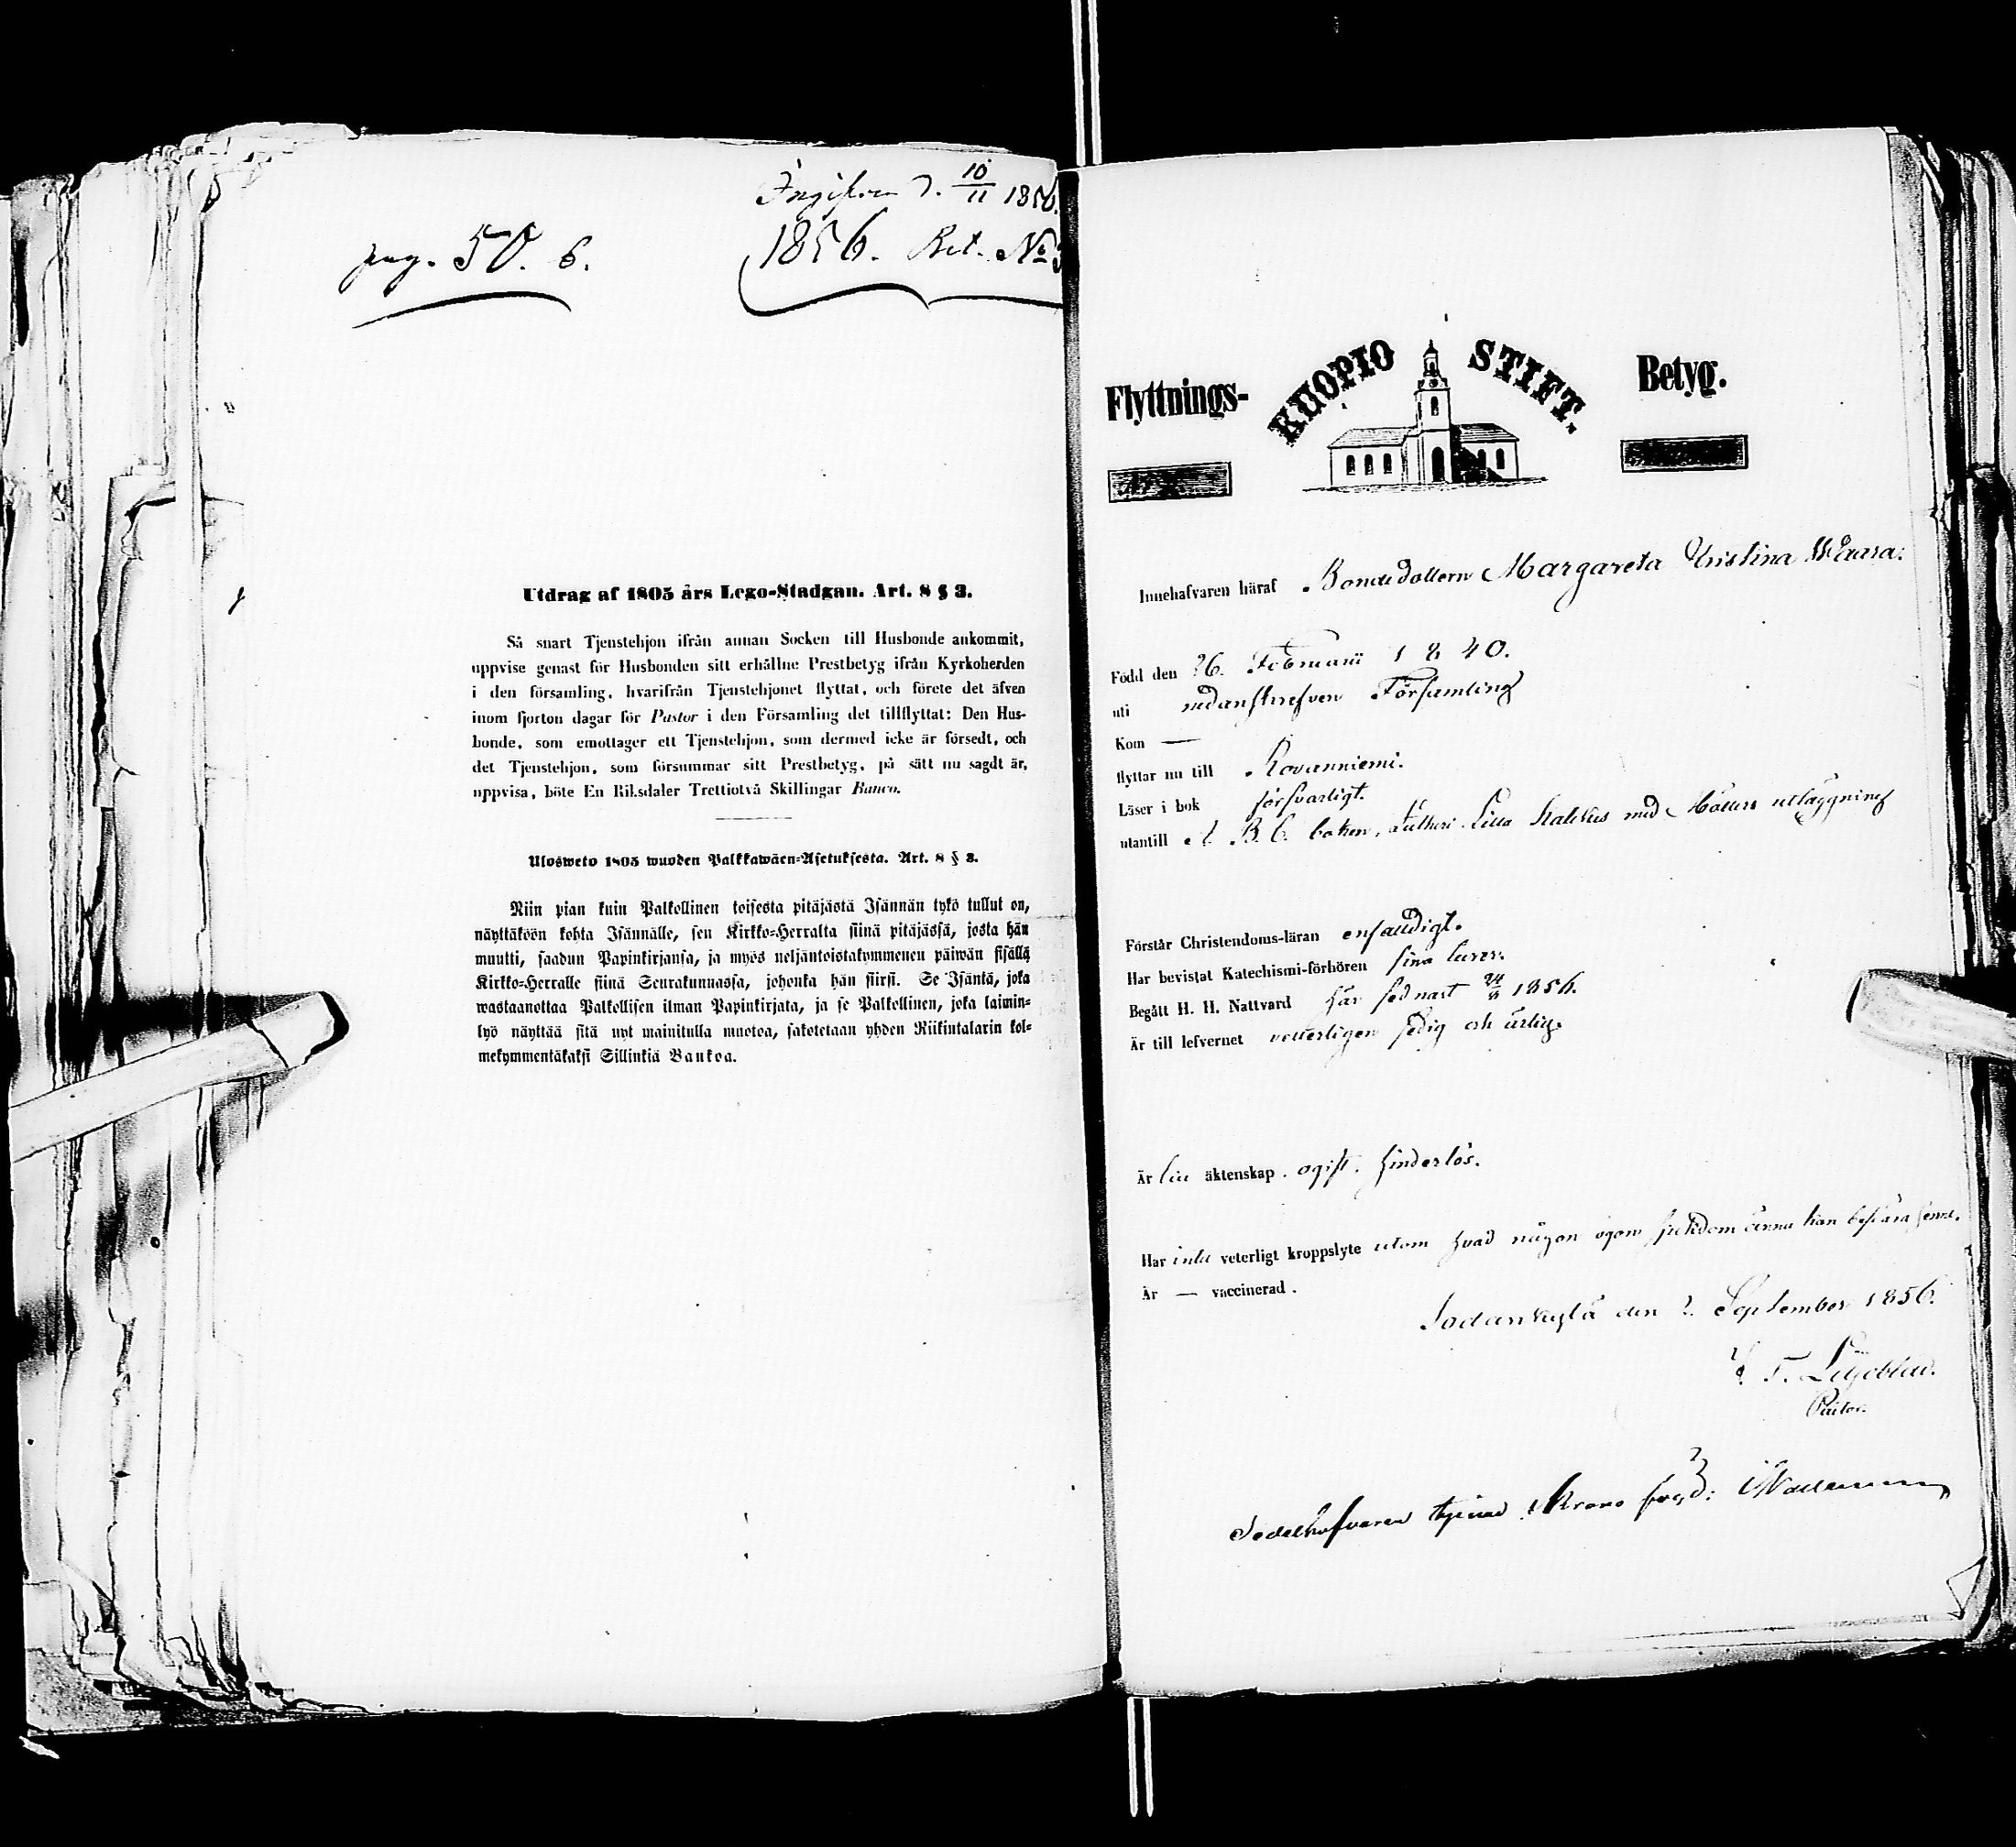 Ingifven d. 10/11 1856.
pag. 50. 6.
1856. Bet. No
Utdrag af 1805 års Lego-Stadgan. Art. 8 § 3.
Så snart Tjenstehjon ifrån annan Socken till Husbonde ankommit,
uppvise genast för Husbonden sitt erhållne Prestbetyg ifrån Kyrkoherden
i den församling, hvarifrån Tjenstehjonet flyttat, och förete det äfven
inom fjorton dagar för Pastor i den Församling det tillflyttat: Den Hus-
bonde, som emottager ett Tjenstehjon, som dermed icke är försedt, och
det Tjenstehjon, som försummar sitt Prestbetyg, på sätt nu sagdt är,
uppvisa, böte En Riksdaler Trettiotvå Skillingar Banco.
Ulosweto 1805 wuoden Palkkawäen-Asetuksesta. Art. 8 § 3.
Niin pian kuin Palkollinen toisesta pitäjästä Isännän tykö tullut on,
näyttäköön kohta Isännälle, sen Kirkko-Herralta siinä pitäjässä, josta hän
muutti, saadun Papinkirjansa, ja myös neljäntoistakymmenen päiwän sisällä
Kirkko-Herralle siinä Seurakunnassa, johonka hän siirsi. Se Isäntä, joka
wastaanottaa Palkollisen ilman Papinkirjata, ja se Palkollinen, joka laimin-
lyö näyttää sitä nyt mainitulla muotoa, sakotetaan yhden Riikintalarin kol-
mekymmentäkaksi Sillinkiä Bankoa.
Flyttnings- KUOPIO STIFT. Betyg.
Innehafvaren häraf Bondedottern Margareta Kristina Waara.
Född den 26. Februarii 1840.
uti nedanskrefven Församling
Kom —
flyttar nu till Rovanniemi.
Läser i bok försvarligt.
utantill A B C boken, Lutheri Lilla Katekes med utläggning
Förstår Christendoms-läran enfaldigt.
Har bevistat Katechismi-förhören sina kurer.
Begått H. H. Nattvard här sednast 24/8 1856.
Är till lefvernet vetterligen sedig och ärlig.
Är till äktenskap. ogift. hinderlös.
Har intet veterligt kroppslyte utom hvad någon ögon sjukdom ännu kan besvära henne.
Är — vaccinerad.
Sodankylä den 2. September 1856.
Pastor.
Sedelhafvaren tjenar Krono fogd: